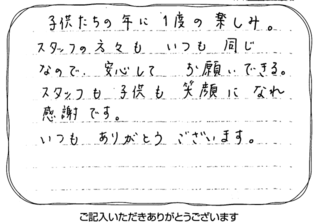 子供たちの年に1度の楽しみ。
スタッフの方々も いつも 同じ
なので、安心して お願いできる。
スタッフも 子供も 笑顔に なれ
感謝です。
いつも ありがとう ございます。
ご記入いただきありがとうございます